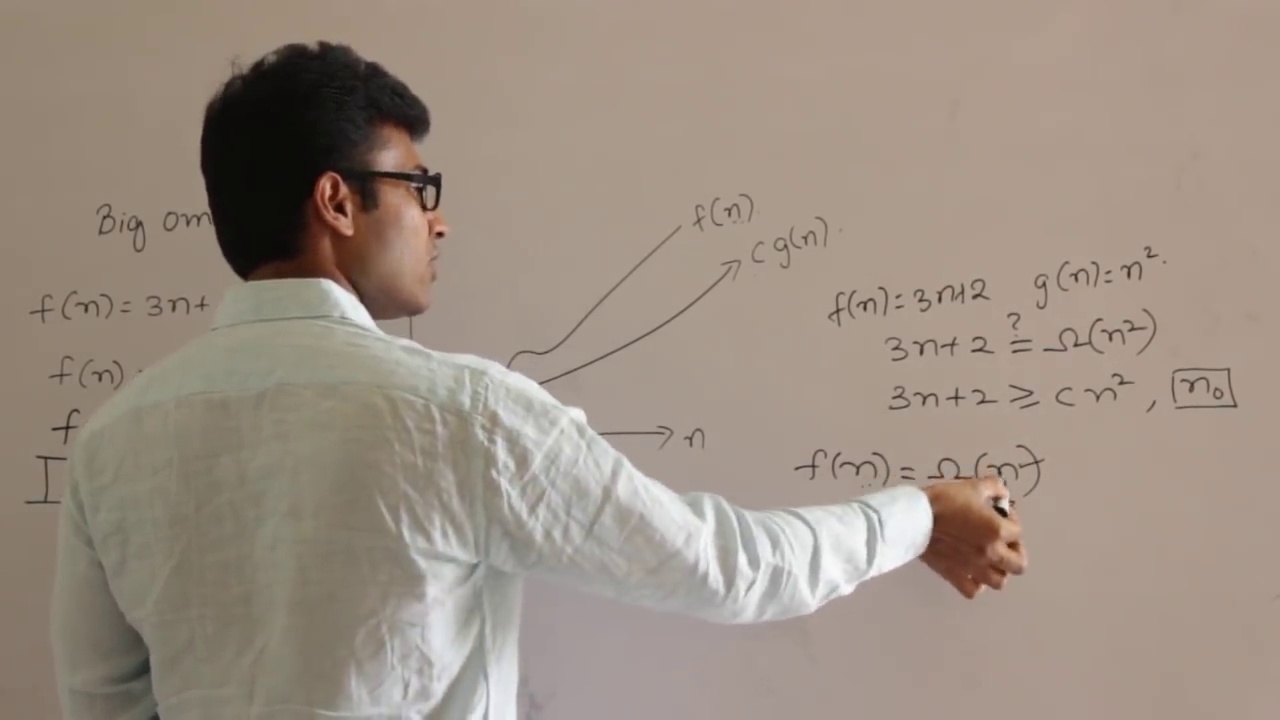 Big om
f(n) = 3n+
f(n)
f
f(n)
c g(n)
n
f(n) = 3n+2 g(n) = n².
3n+2 ≟ Ω(n²)
3n+2 ≥ cn², n₀
f(n) = Ω(n)